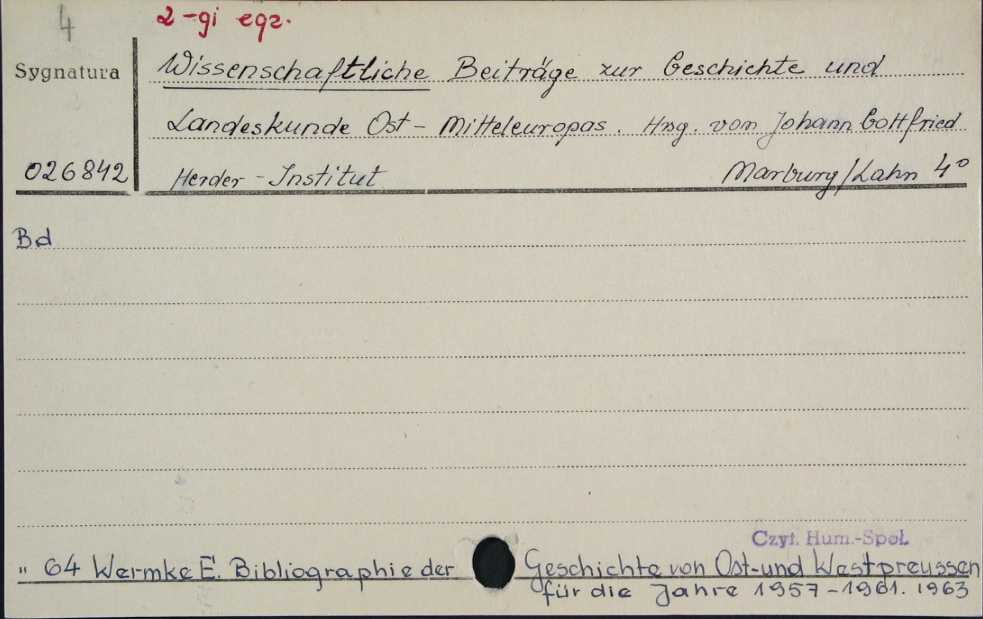 4
2-gi egz.
Sygnatura
Wissenschaftliche Beiträge zur Geschichte und
Landeskunde Ost-Mitteleuropas. Hrsg. vom Johann Gottfried
026842
Herder-Institut Marburg/Lahn 4°
Bd
Czyt. Hum.-Społ.
" 64 Wermke E. Bibliographie der Geschichte von Ost-und Westpreussen
für die Jahre 1957-1961. 1963